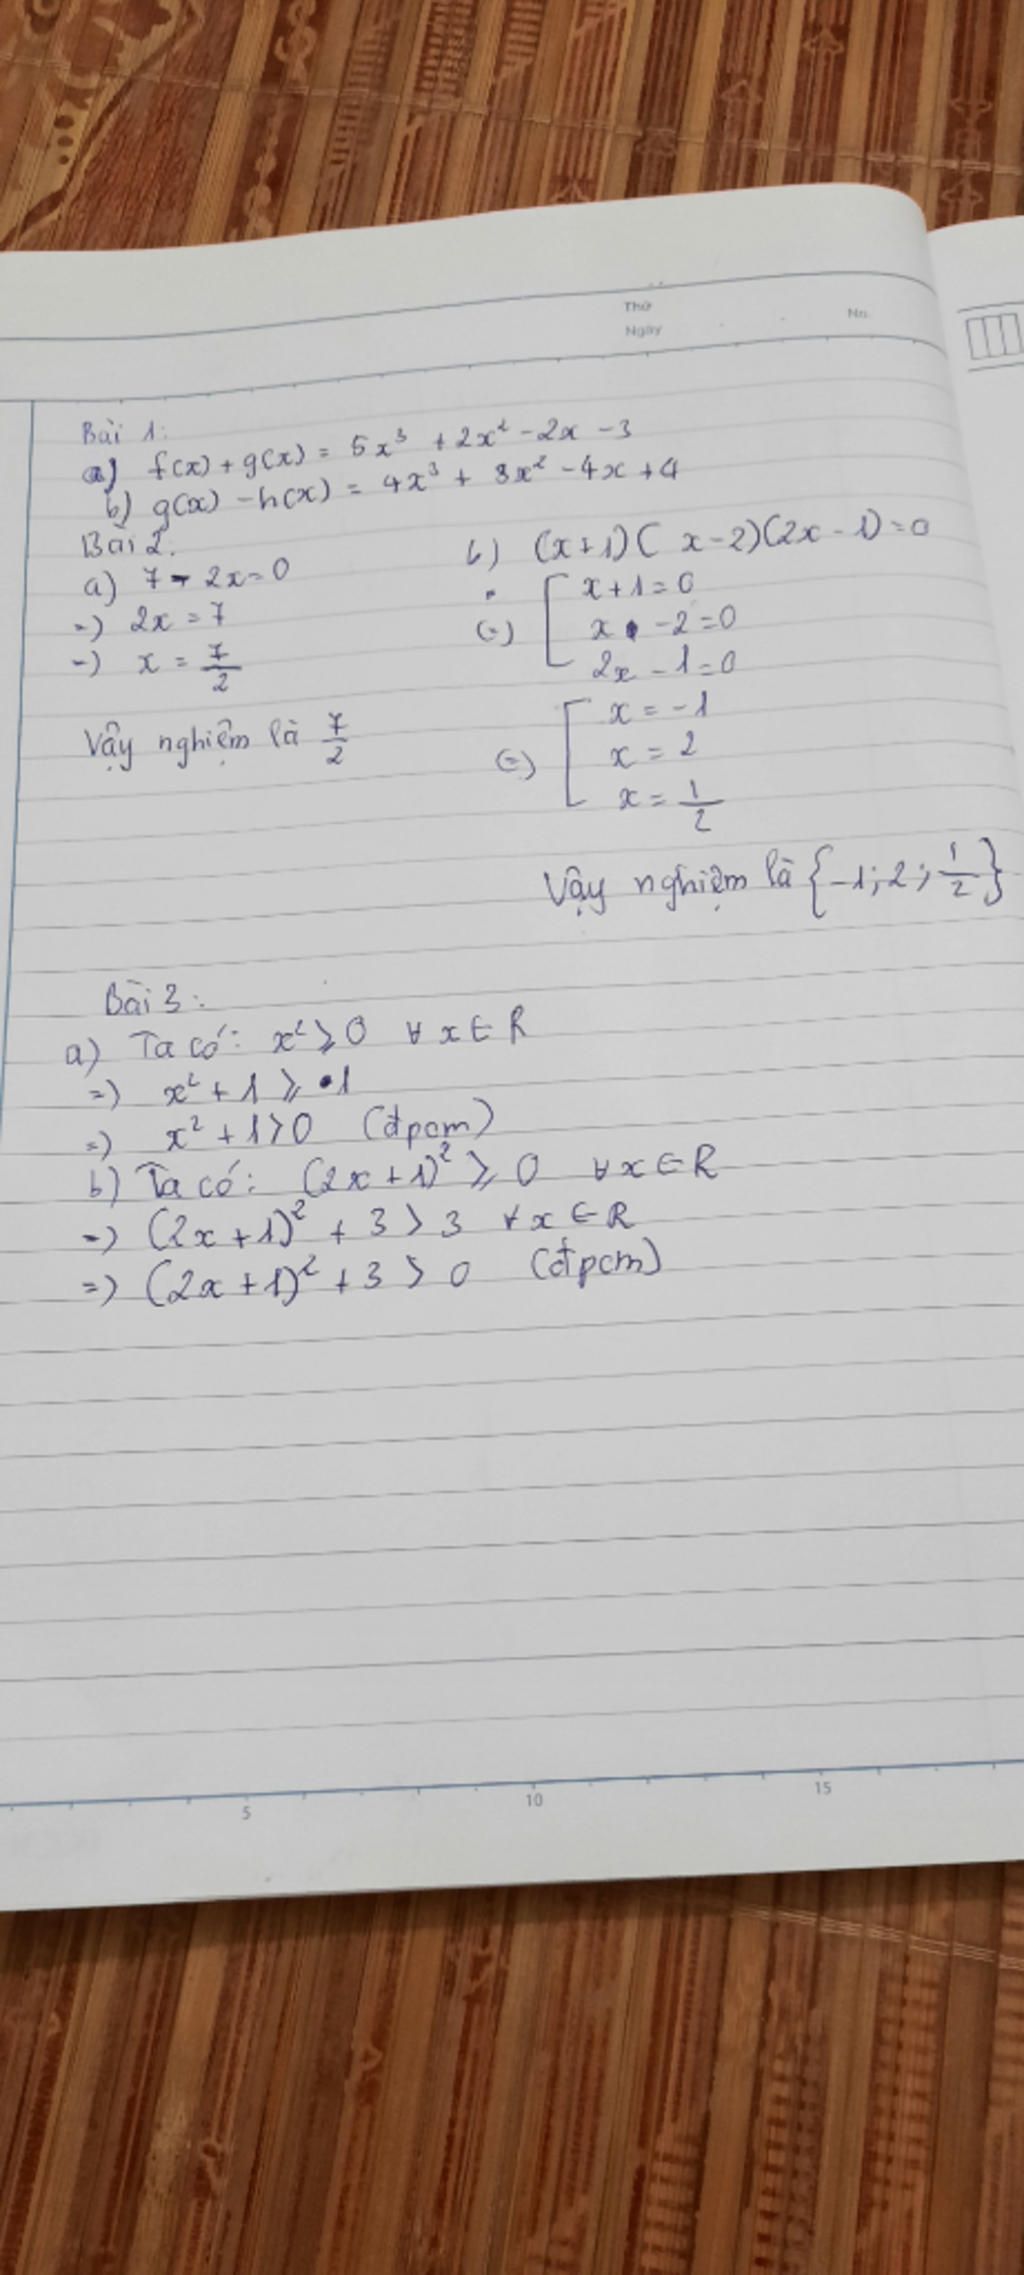 Thứ
Ngày
No.
Bài 1:
a) f(x) + g(x) = 5x³ + 2x² - 2x - 3
b) g(x) - h(x) = 4x³ + 3x² - 4x + 4
Bài 2.
a) 7 - 2x = 0
=) 2x = 7
=) x = 7/2
Vậy nghiệm là 7/2
b) (x+1)( x-2)(2x-1) = 0
(=) [ x+1=0
x -2=0
2x -1=0
(=) [ x = -1
x = 2
x = 1/2
Vậy nghiệm là {-1; 2; 1/2}
Bài 3:
a) Ta có: x² ⩾ 0 ∀ x ∈ R
=) x² + 1 ⩾ 1
=) x² + 1 > 0 (đpcm)
b) Ta có: (2x+1)² ⩾ 0 ∀x ∈ R
=) (2x+1)² + 3 > 3 ∀x ∈ R
=) (2x+1)² + 3 > 0 (đpcm)
5 10 15